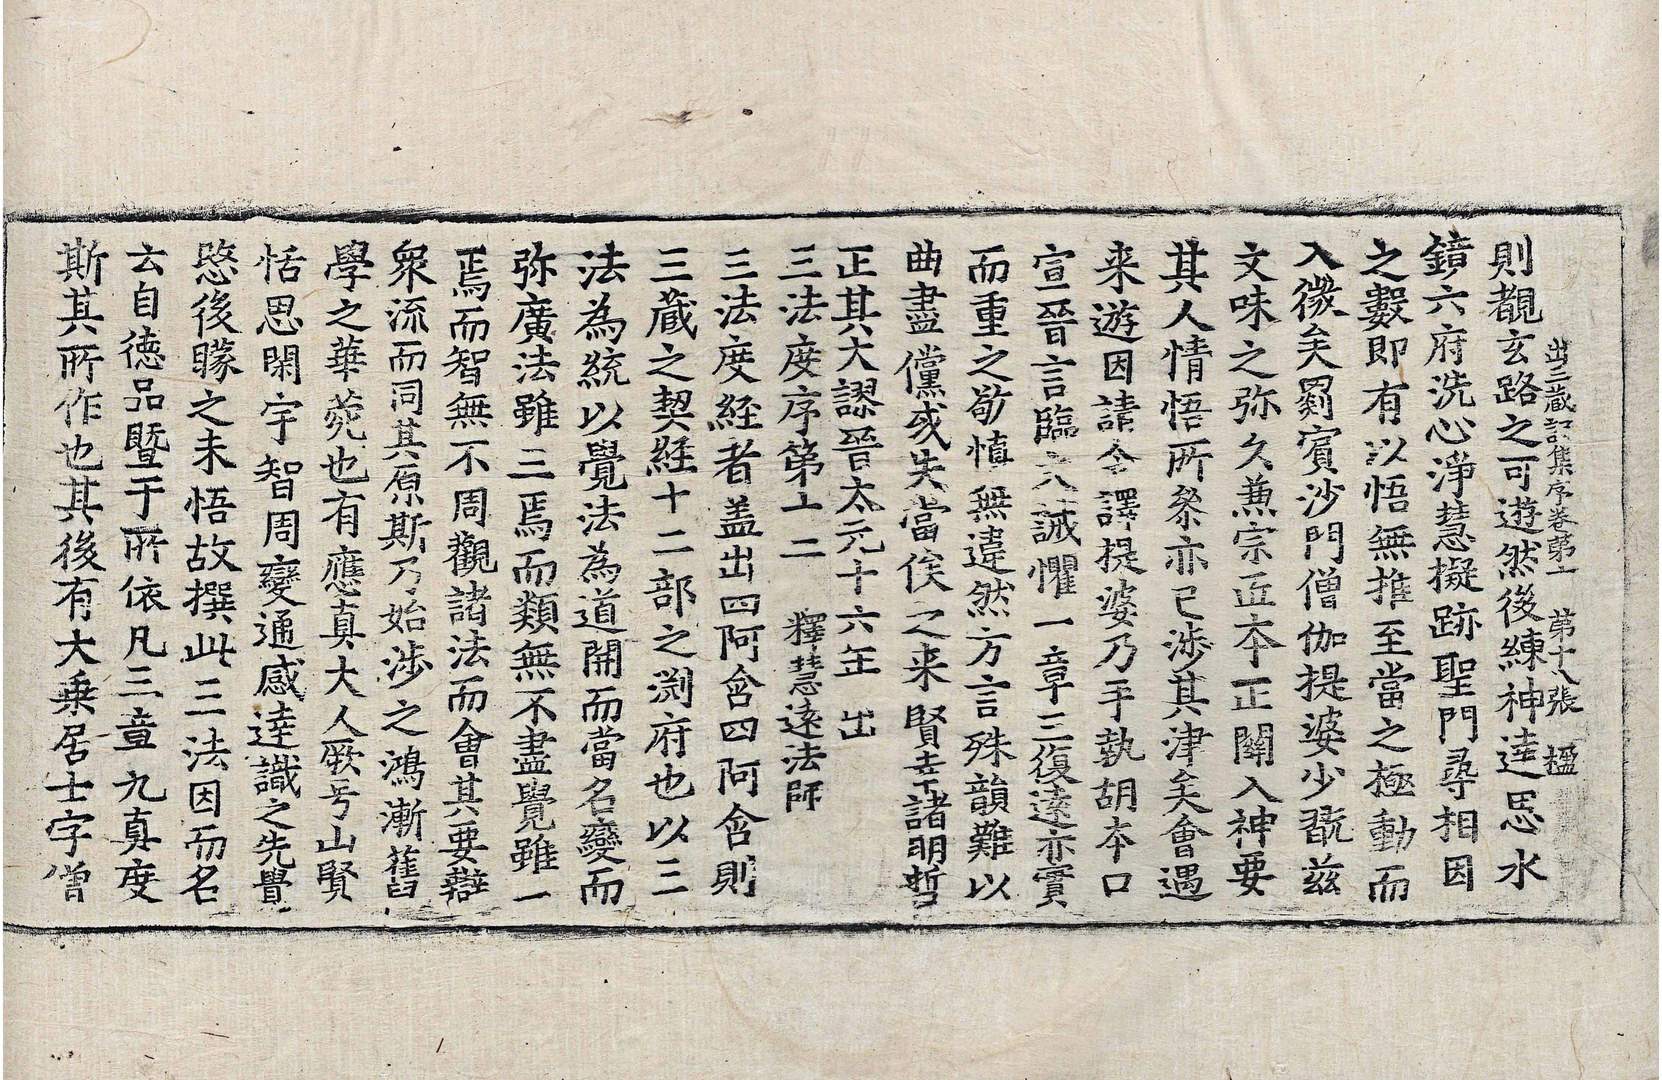 出三藏記集序卷第十　第十八張　楹
則覩玄路之可遊然後練神達思水
鏡六府洗心淨慧擬跡聖門尋相因
之數即有以悟無推至當之極動而
入微矣罽賓沙門僧伽提婆少翫茲
文味之弥久兼宗匠本正關入神要
其人情悟所叅亦已涉其津矣會遇
来遊因請令譯提婆乃手執胡本口
宣晉言臨文誡懼一章三復遠亦實
而重之敬慎無違然方言殊韻難以
曲盡儻或失當俟之来賢幸諸明哲
正其大謬晉太元十六年出
三法度序第十二　釋慧遠法師
三法度經者盖出四阿含四阿含則
三藏之契経十二部之渊府也以三
法為統以覺法為道開而當名變而
弥廣法雖三焉而類無不盡覺雖一
焉而智無不周觀諸法而會其要辯
衆流而同其原斯乃始涉之鴻漸舊
學之華菀也有應真大人厥号山賢
恬思閑宇智周變通感達識之先覺
愍後矇之未悟故撰此三法因而名
云自德品暨于所依凡三章九真度
斯其所作也其後有大乗居士字僧